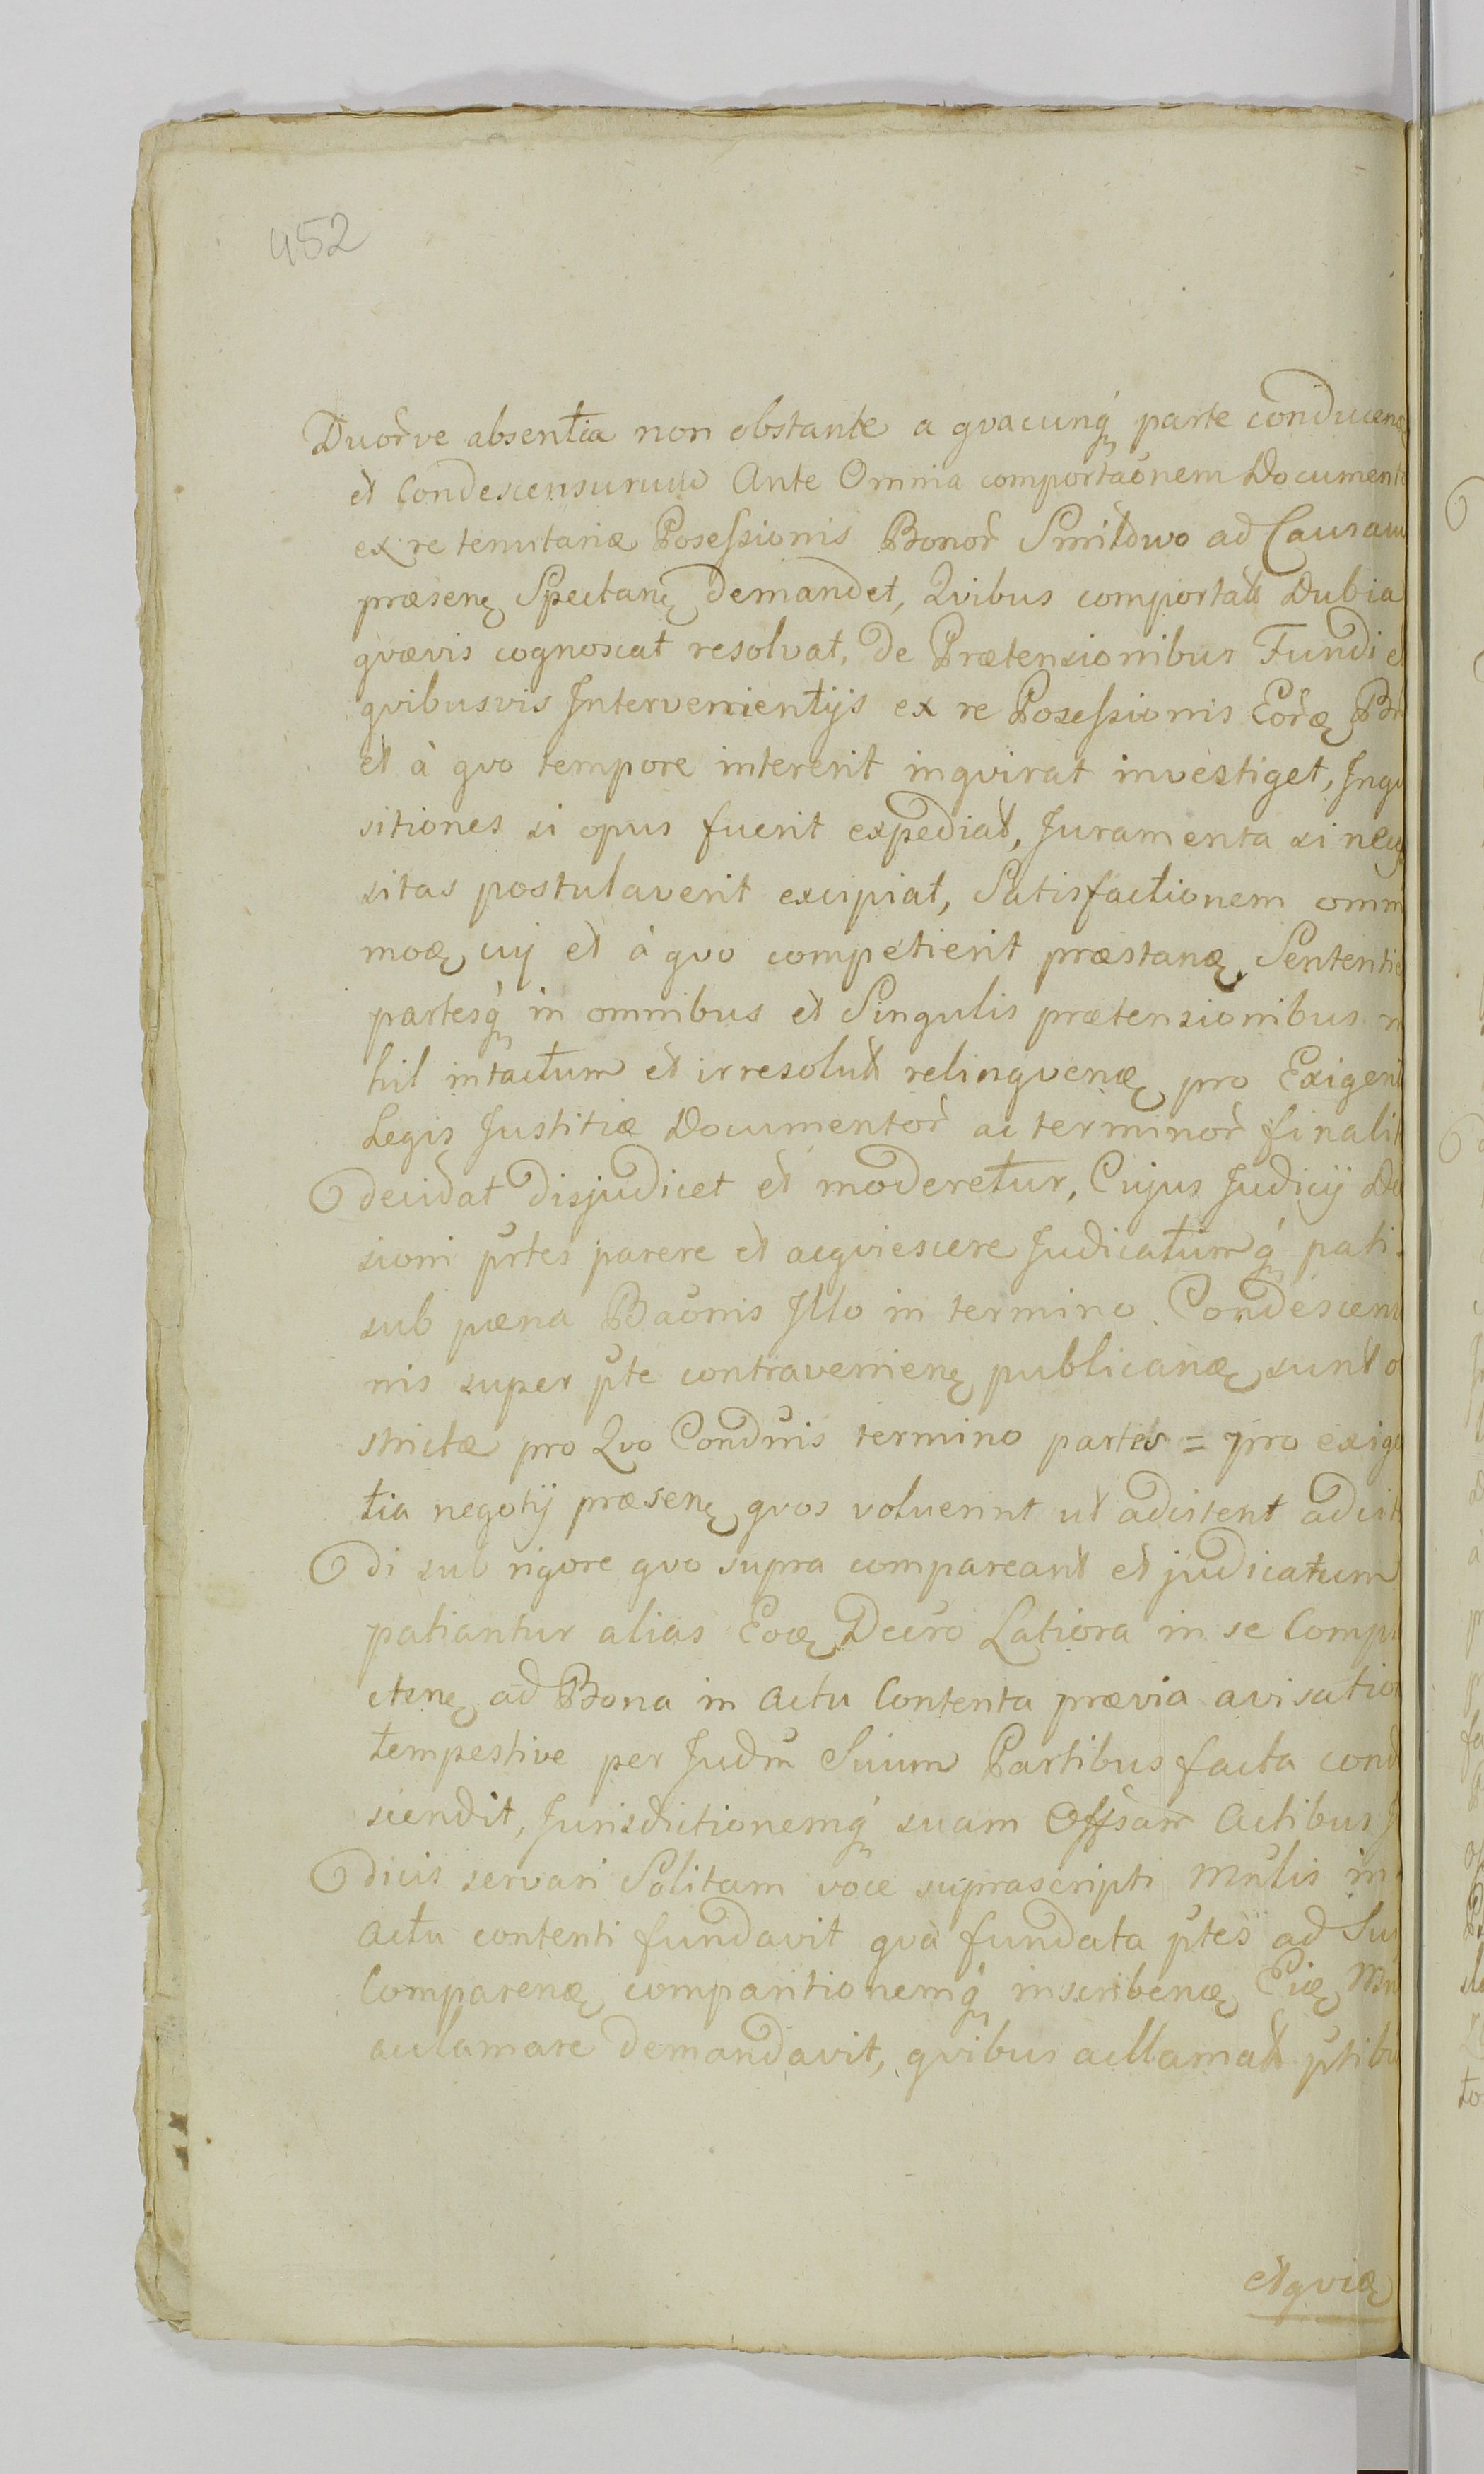 452
Duor̃ve absentia non obstante a qvacunq́ꝫ parte conducenę
et Condescensurum Ante Omnia comportaõnem Document
ex re tenutariæ Posessionis Bonor̃ Smiłowo ad Causam
præsenę Spectanę demandet, Qvibus comportatt Dubia
qvævis cognoscat resolvat, de Prætensionibus Fundi et
qvibusvis Intervenientijs ex re Posessionis Eor̃ę
et à qvo tempore intererit inqvirat investiget, Inqvi
sitiones si opus fuerit expediat, Juramenta si nec
sitas postulaverit excipiat, Satisfactionem omni
moę cuj et à qvo competierit præstanę Sententi
partesq́ꝫ in omnibus et Singulis prætensionibus n
hil intactum et irresolutt relinqvenę pro Exigent
Legis Justitiæ Documentor̃ ac terminor̃ finalit
decidat disjudicet et moderetur, Cujus Judicij De
sioni p̃rtes parere et acqviescere Judicatumq́ꝫ pati
sub pœna Bãonis Illo in termino Condescens
nis super p̃te contravenienę publicanę sunt o
strictæ pro Qvo Cond̃nis termino partes = pro exige
tia negotij præsenę qvos voluerint ut adcitent adcit
di sub rigore qvo supra compareant et judicatum
patiantur alias Eoę Decr̃o Latiora in se Comple
ctenę ad Bona in Actu Contenta prævia avisatio
tempestive per Jud̃m Suum Partibus facta conde
scendit, Jurisdictionemq́ꝫ suam Offsam Actibus J
dicis servari Solitam voce suprascripti Mñlis in
Actu contenti fundavit qvà fundata p̃tes ad Su
Comparenę comparitionemq́ꝫ inscribenę Eię Mn
acclamare demandavit, qvibus acclamatt p̃tibu
et qvię